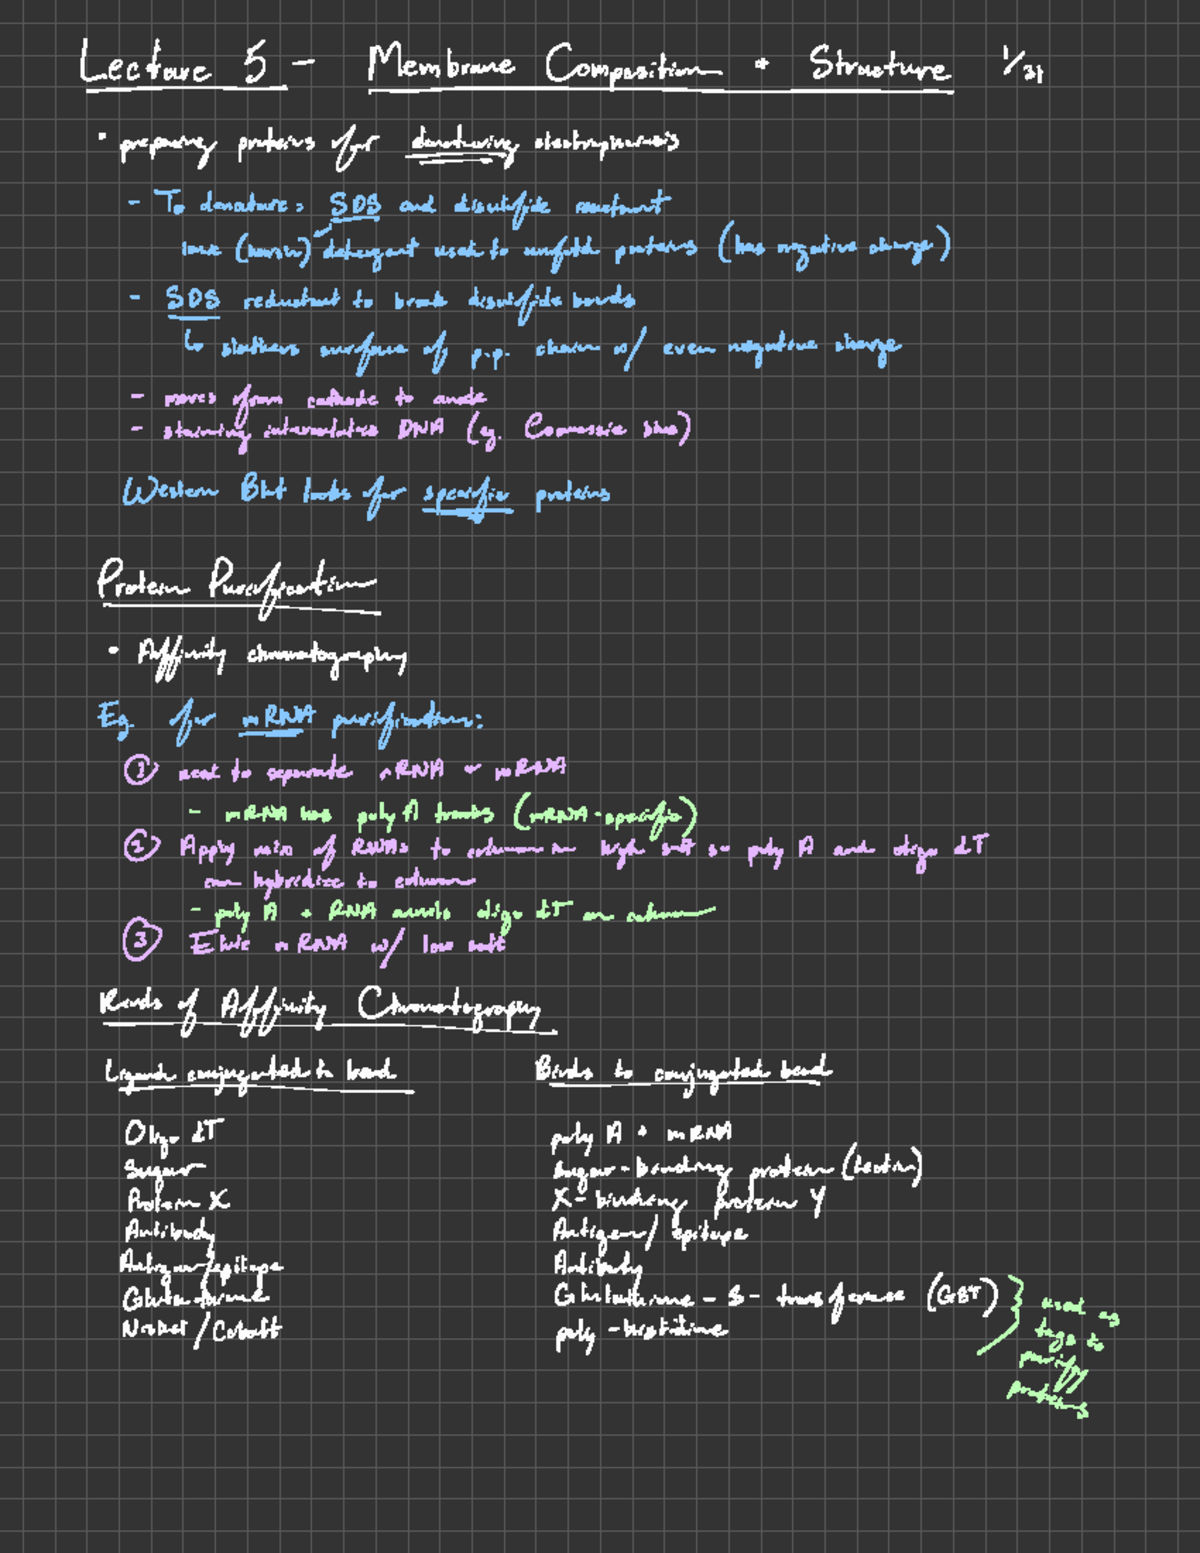 Lecture 5 - Membrane Composition + Structure 1/31
• preparing proteins for denaturing electrophoresis
- To denature: SDS and disulfide reductant
(harsh) detergent used to unfold proteins (has negative charge)
- SDS reductant to break disulfide bonds
↳ slathers surface of p.p. chain w/ even negative charge
- moves from cathode to anode
- staining intercalates DNA (eg. Comassie blue)
Western Blot looks for specific proteins
Protein Purification
• Affinity chromatography
Eg. for mRNA purification:
① need to separate rRNA + mRNA
- mRNA has poly A tracks (mRNA-specific)
② Apply mix of RNAs to column in high salt so poly A and oligo dT
can hybridize to column
- poly A + RNA anneals oligo dT on column
③ Elute mRNA w/ low salt
Kinds of Affinity Chromatography
Ligand conjugated to bead
Binds to conjugated bead
Oligo dT
poly A + mRNA
Sugar
sugar-binding protein (lectin)
Protein X
X-binding protein Y
Antibody
Antigen/epitope
Antigen/epitope
Antibody
Glutathione
Glutathione-S-transferase (GST)
Nickel/Cobalt
poly-histidine
used as
tags to
purify
proteins